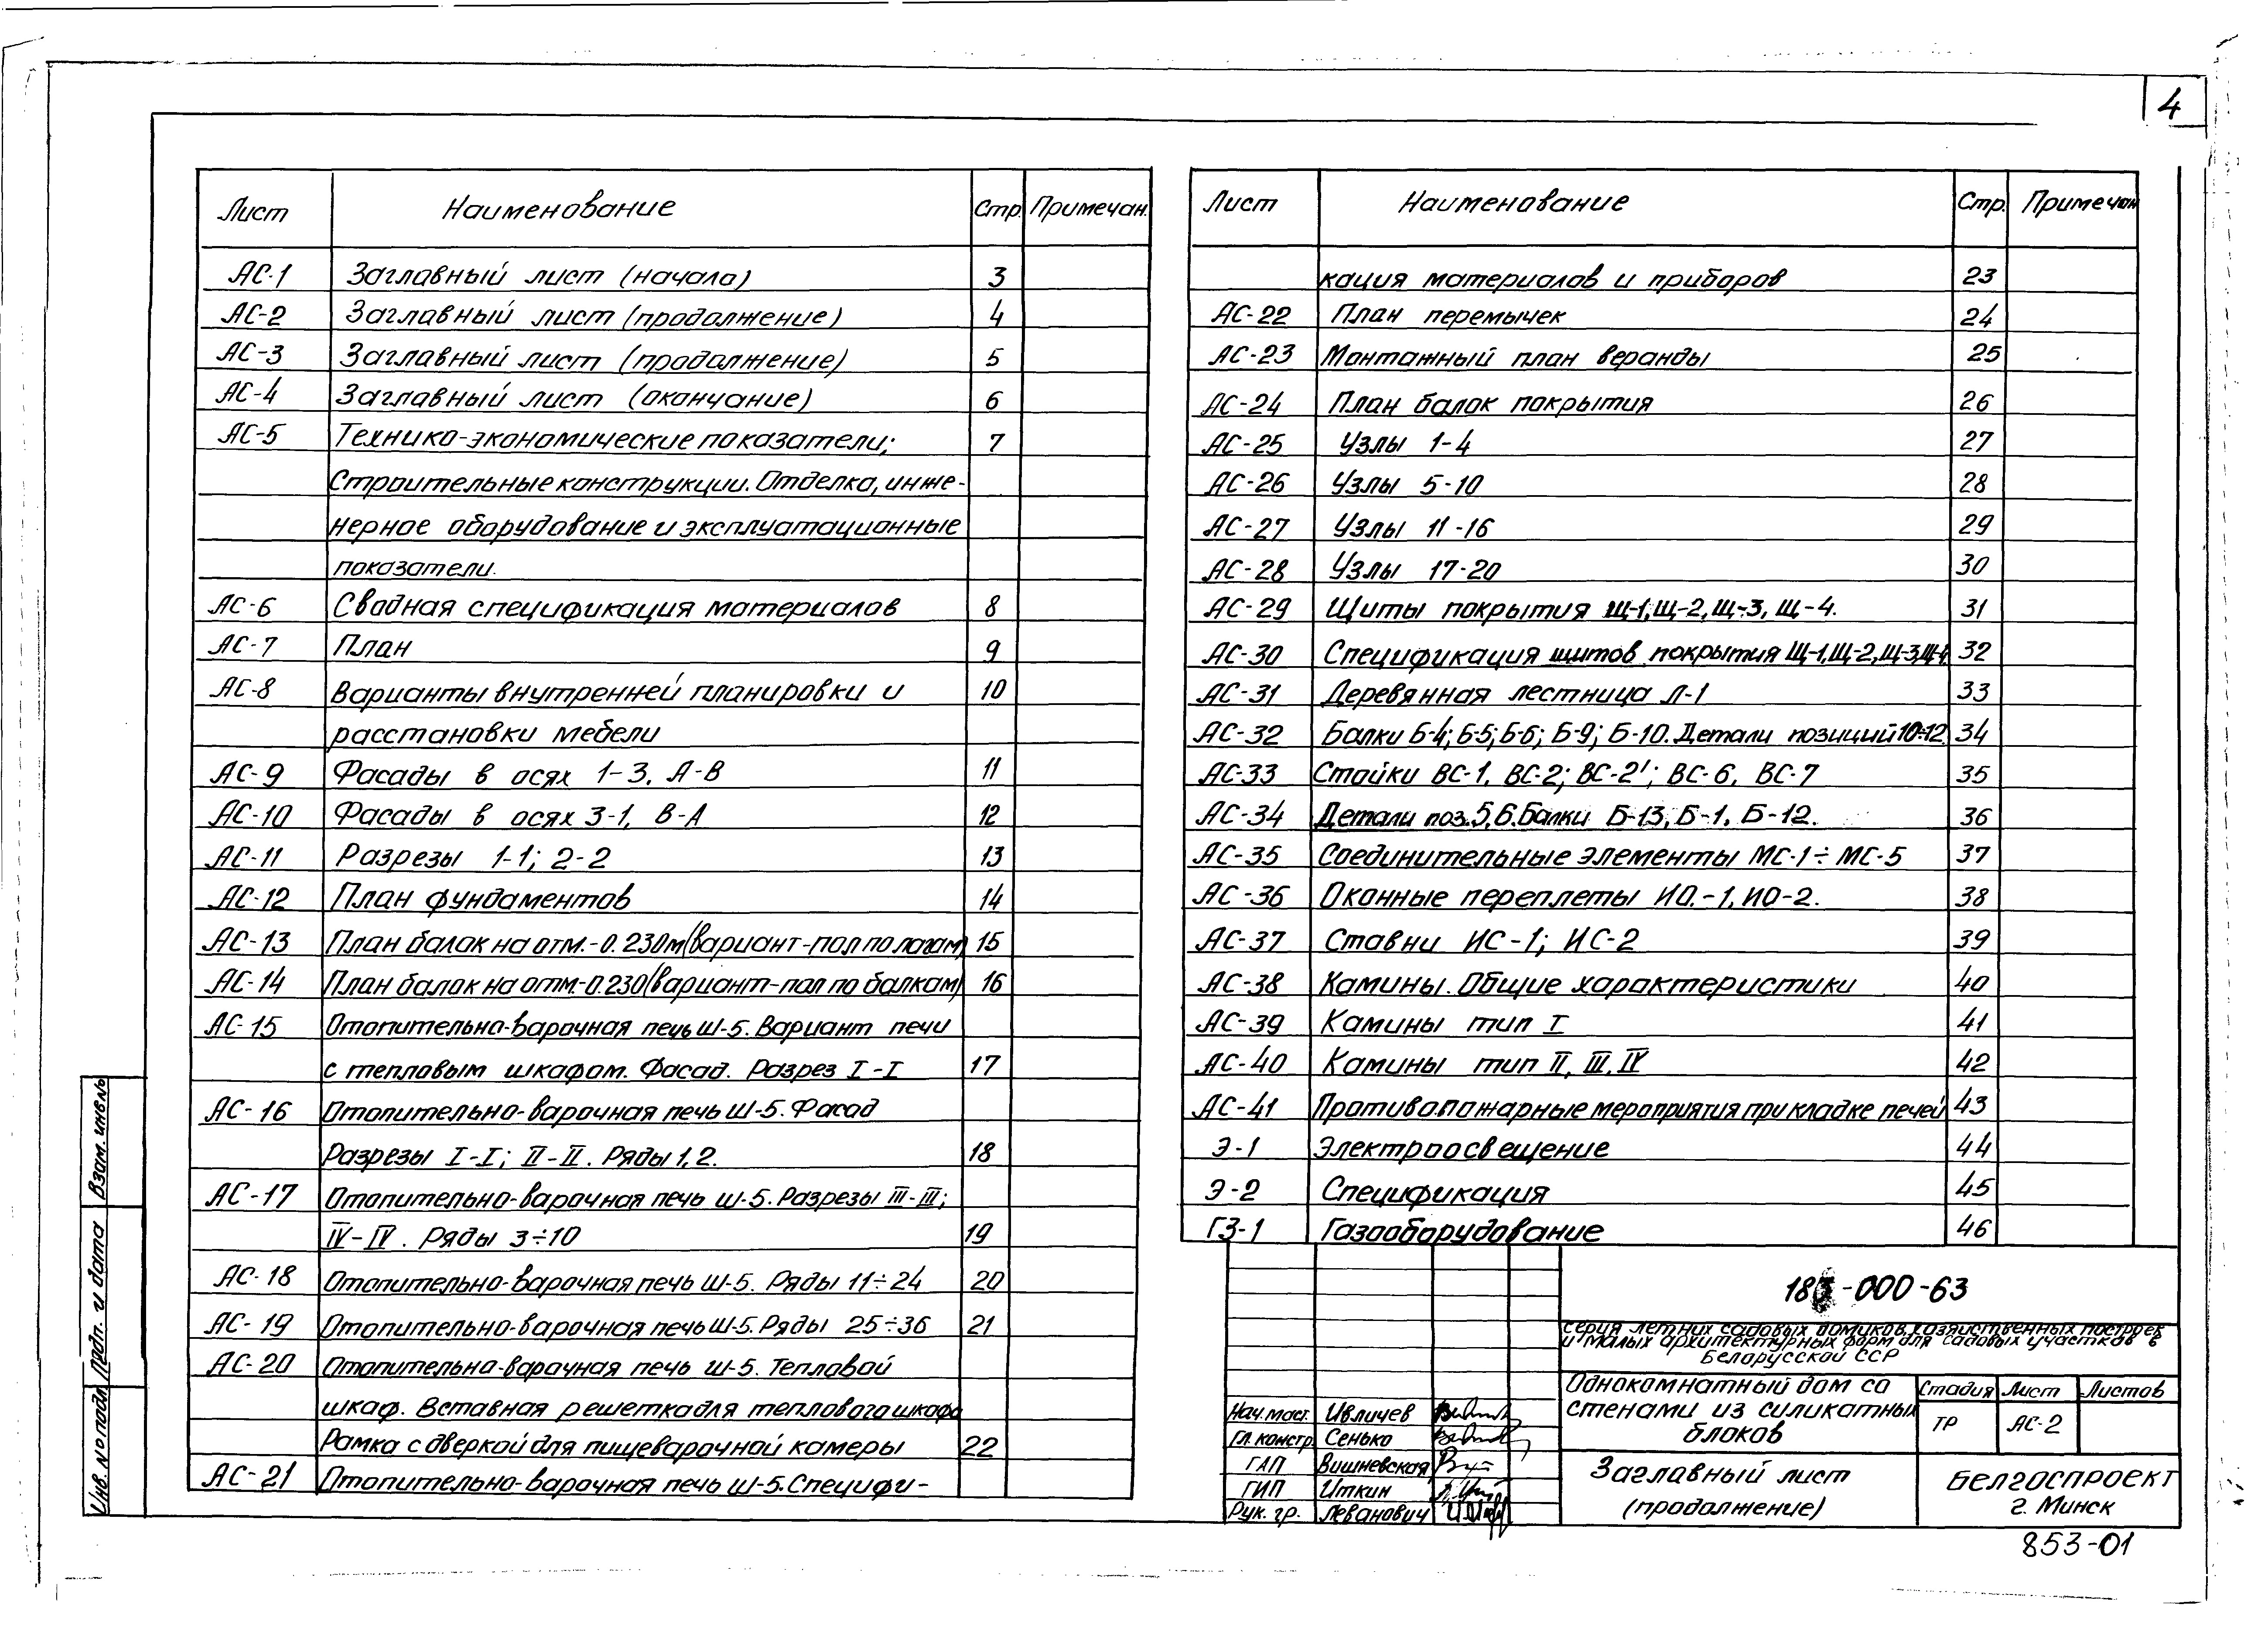 4
Лист Наименование Стр. Примечан.
АС-1 Заглавный лист (начало) 3
АС-2 Заглавный лист (продолжение) 4
АС-3 Заглавный лист (продолжение) 5
АС-4 Заглавный лист (окончание) 6
АС-5 Технико-экономические показатели; 7
Строительные конструкции. Отделка, инже-
нерное оборудование и эксплуатационные
показатели.
АС-6 Сводная спецификация материалов 8
АС-7 План 9
АС-8 Варианты внутренней планировки и 10
расстановки мебели
АС-9 Фасады в осях 1-3, А-В 11
АС-10 Фасады в осях 3-1, В-А 12
АС-11 Разрезы 1-1; 2-2 13
АС-12 План фундаментов 14
АС-13 План балок на отм.-0.230м (вариант-пол по лагам) 15
АС-14 План балок на отм.-0.230 (вариант-пол по балкам) 16
АС-15 Отопительно-варочная печь Ш-5. Вариант печи
с тепловым шкафом. Фасад. Разрез I-I 17
АС-16 Отопительно-варочная печь Ш-5. Фасад
Разрезы I-I; II-II. Ряды 1,2. 18
АС-17 Отопительно-варочная печь Ш-5. Разрезы III-III;
IV-IV. Ряды 3÷10 19
АС-18 Отопительно-варочная печь Ш-5. Ряды 11÷24 20
АС-19 Отопительно-варочная печь Ш-5. Ряды 25÷36 21
АС-20 Отопительно-варочная печь Ш-5. Тепловой
шкаф. Вставная решетка для теплового шкафа
Рамка с дверкой для пищеварочной камеры 22
АС-21 Отопительно-варочная печь Ш-5. Специфи-
Лист Наименование Стр. Примечан
кация материалов и приборов 23
АС-22 План перемычек 24
АС-23 Монтажный план веранды 25
АС-24 План балок покрытия 26
АС-25 Узлы 1-4 27
АС-26 Узлы 5-10 28
АС-27 Узлы 11-16 29
АС-28 Узлы 17-20 30
АС-29 Щиты покрытия Щ-1, Щ-2, Щ-3, Щ-4. 31
АС-30 Спецификация щитов покрытия Щ-1, Щ-2, Щ-3, Щ-4 32
АС-31 Деревянная лестница Л-1 33
АС-32 Балки Б-4; Б-5; Б-6; Б-9; Б-10. Детали позиций 10÷12 34
АС-33 Стойки ВС-1, ВС-2; ВС-2'; ВС-6, ВС-7 35
АС-34 Детали поз. 5, 6. Балки Б-13, Б-1, Б-12. 36
АС-35 Соединительные элементы МС-1÷МС-5 37
АС-36 Оконные переплеты ИО.-1, ИО-2. 38
АС-37 Ставни ИС-1; ИС-2 39
АС-38 Камины. Общие характеристики 40
АС-39 Камины тип I 41
АС-40 Камины тип II, III, IV 42
АС-41 Противопожарные мероприятия при кладке печей 43
Э-1 Электроосвещение 44
Э-2 Спецификация 45
ГЗ-1 Газооборудование 46
-000-63
серия летних садовых домиков, хозяйственных построек
и малых архитектурных форм для садовых участков в
Белорусской ССР
Однокомнатный дом со
стенами из силикатных
блоков
Стадия Лист Листов
ТР АС-2
Заглавный лист
(продолжение)
БЕЛГОСПРОЕКТ
г. Минск
Нач. маст. Ивличев
Гл. констр. Сенько
ГАП Вишневская
ГИП Иткин
Рук. гр. Леванович
853-01
Взам. инв.№
Подп. и дата
Инв. № подл.